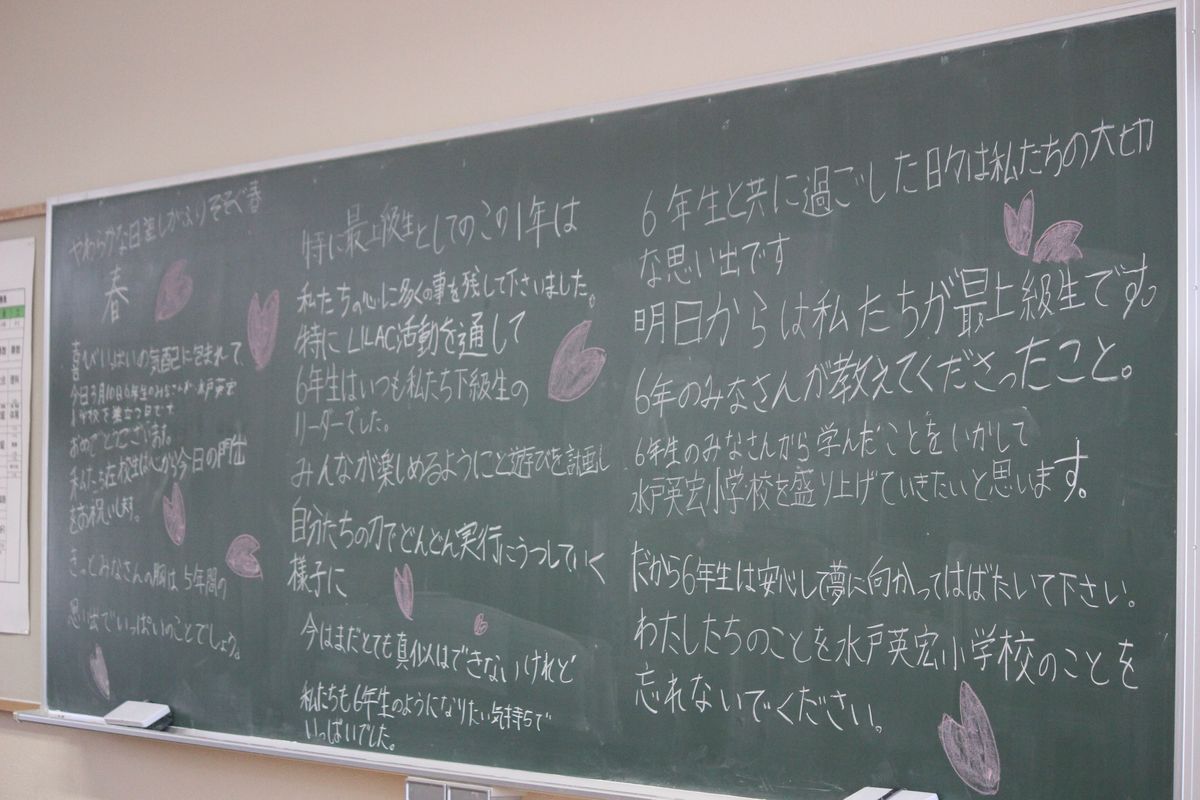 やわらかな日差しがふりそそぐ春
春
喜びいっぱいの気配に包まれて、
今日3月10日6年生のみなさんが水戸英宏
小学校を巣立つ日です
おめでとうございます。
私たち在校生は心から今日の門出
をお祝いします。
きっとみなさんの胸は5年間の
思い出でいっぱいのことでしょう。
特に最上級生としてのこの1年は
私たちの心に多くの事を残して下さいました。
特にLILAC活動を通して
6年生はいつも私たち下級生の
リーダーでした。
みんなが楽しめるようにと遊びを計画し
自分たちの力でどんどん実行にうつしていく
様子に
今はまだとても真似はできないけれど
私たちも6年生のようになりたい気持ちで
いっぱいでした。
6年生と共に過ごした日々は私たちの大切
な思い出です
明日からは私たちが最上級生です。
6年のみなさんが教えてくださったこと。
6年生のみなさんから学んだことをいかして
水戸英宏小学校を盛り上げていきたいと思います。
だから6年生は安心して夢に向かってはばたいて下さい。
わたしたちのことを水戸英宏小学校のことを
忘れないでください。